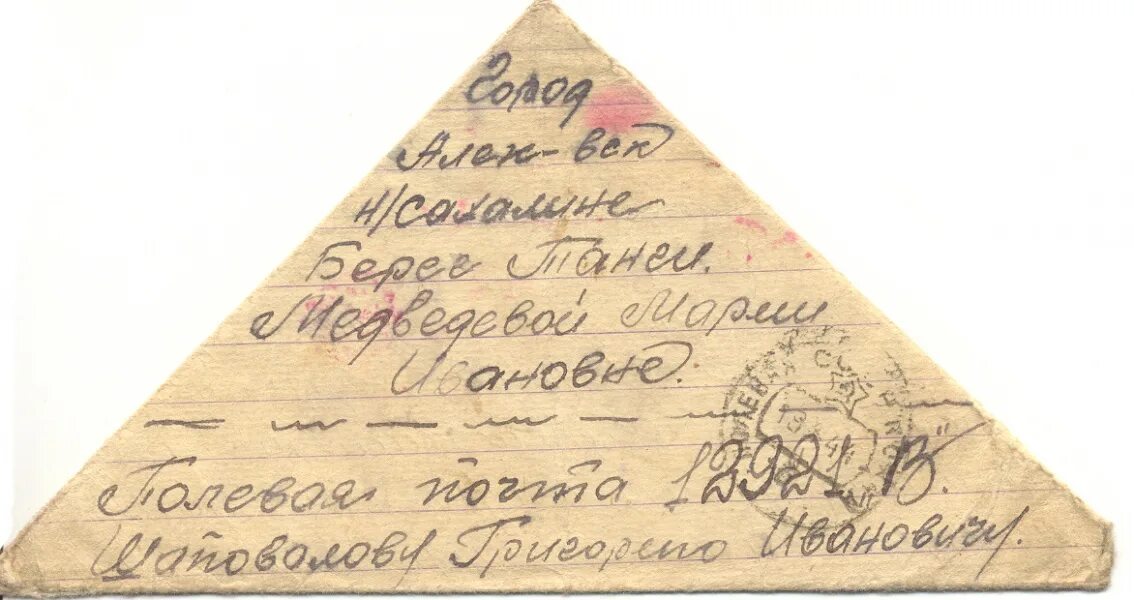 Город
Алек-вск
н/Сахалине
Берег Танги.
Медведевой Марии
Ивановне.
Полевая почта 12921 "В".
Шаповалову Григорею Ивановичу.